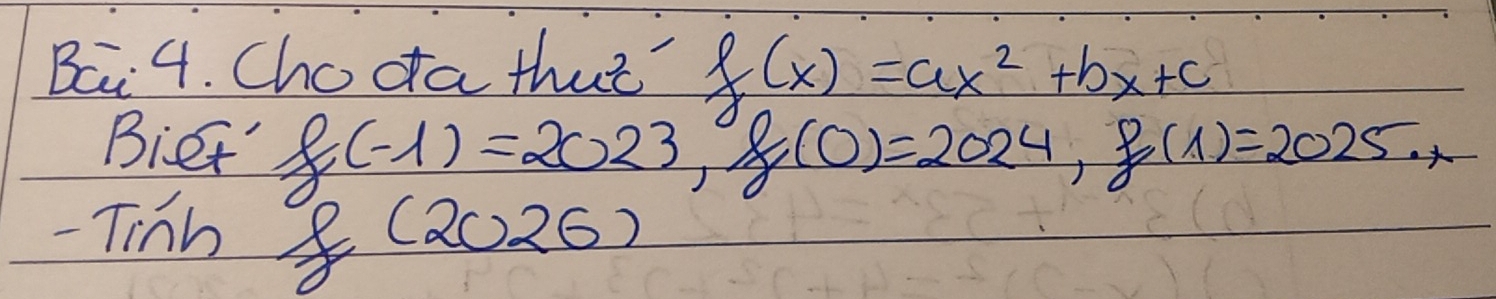 Bài 4. Cho đa thức f(x) = ax² + bx + c
Biết f(-1) = 2023, f(0) = 2024, f(1) = 2025.
- Tính f(2026)